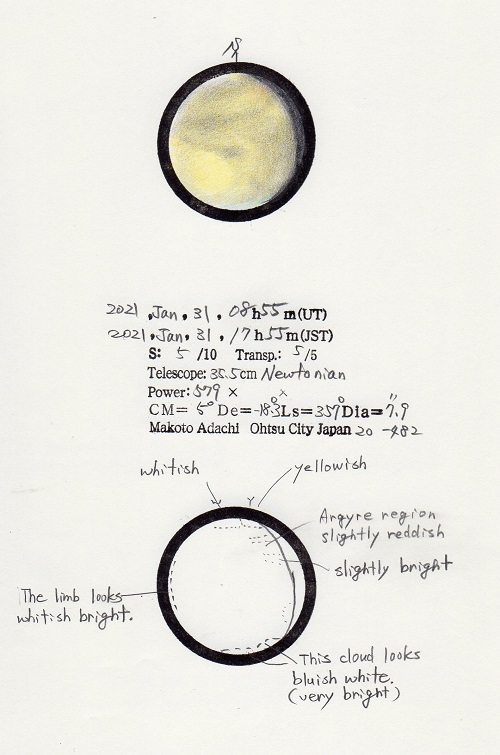 S
2021, Jan, 31, 08h55m(UT)
2021, Jan, 31, 17h55m(JST)
S: 5 /10 Transp.: 5/5
Telescope: 35.5cm Newtonian
Power: 579 ×
CM= 5° De= -18.3 Ls= 357° Dia= 7.9"
Makoto Adachi Ohtsu City Japan 20-482
whitish
yellowish
Argyre region
slightly reddish
slightly bright
The limb looks
whitish bright.
This cloud looks
bluish white.
(very bright)